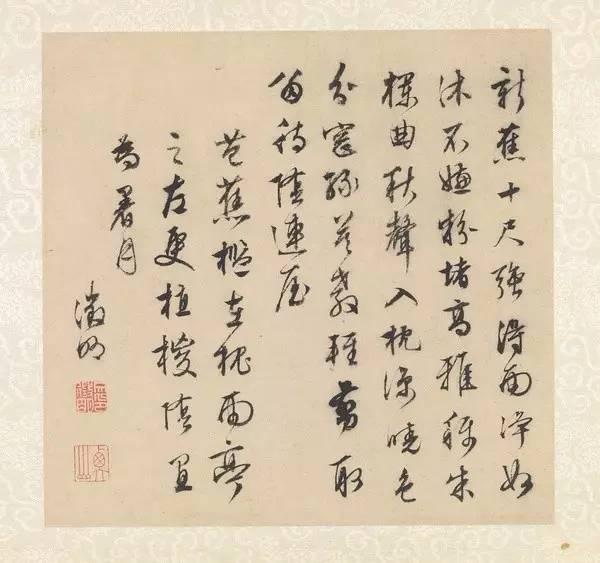 新蕉十尺強得雨淨如
沐不嫌粉堵高雅稱朱
欄曲秋聲入枕涼曉色
分窗綠莫教輕剪取
留待陰連屋
芭蕉檻在槐雨亭
之左更植棕陰宜
為暑月
徵明